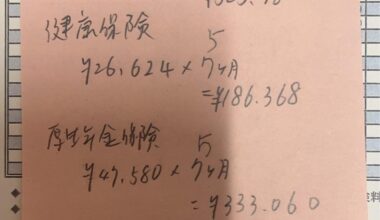 健康保険 5
¥26,624 × 7ヶ月
=¥186.368
厚生年金保険 5
¥47,580 × 7ヶ月
=¥333.060